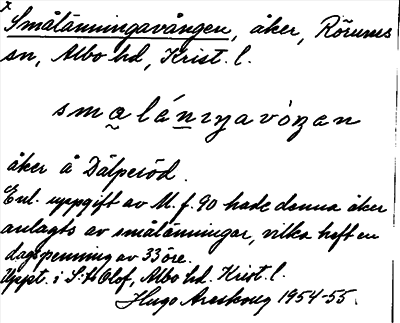 x
Smålänningavången, åker, Rörums
sn, Albo hd, Krist. l.
smalániŋavóŋan
åker å Dälperöd.
Enl. uppgift av M. f. 90 hade denna åker
anlagts av smålänningar, vilka haft en
dagspenning av 33 öre.
Uppt. i S:t Olof, Albo hd. Krist. l.
Hugo Areskoug 1954-55.